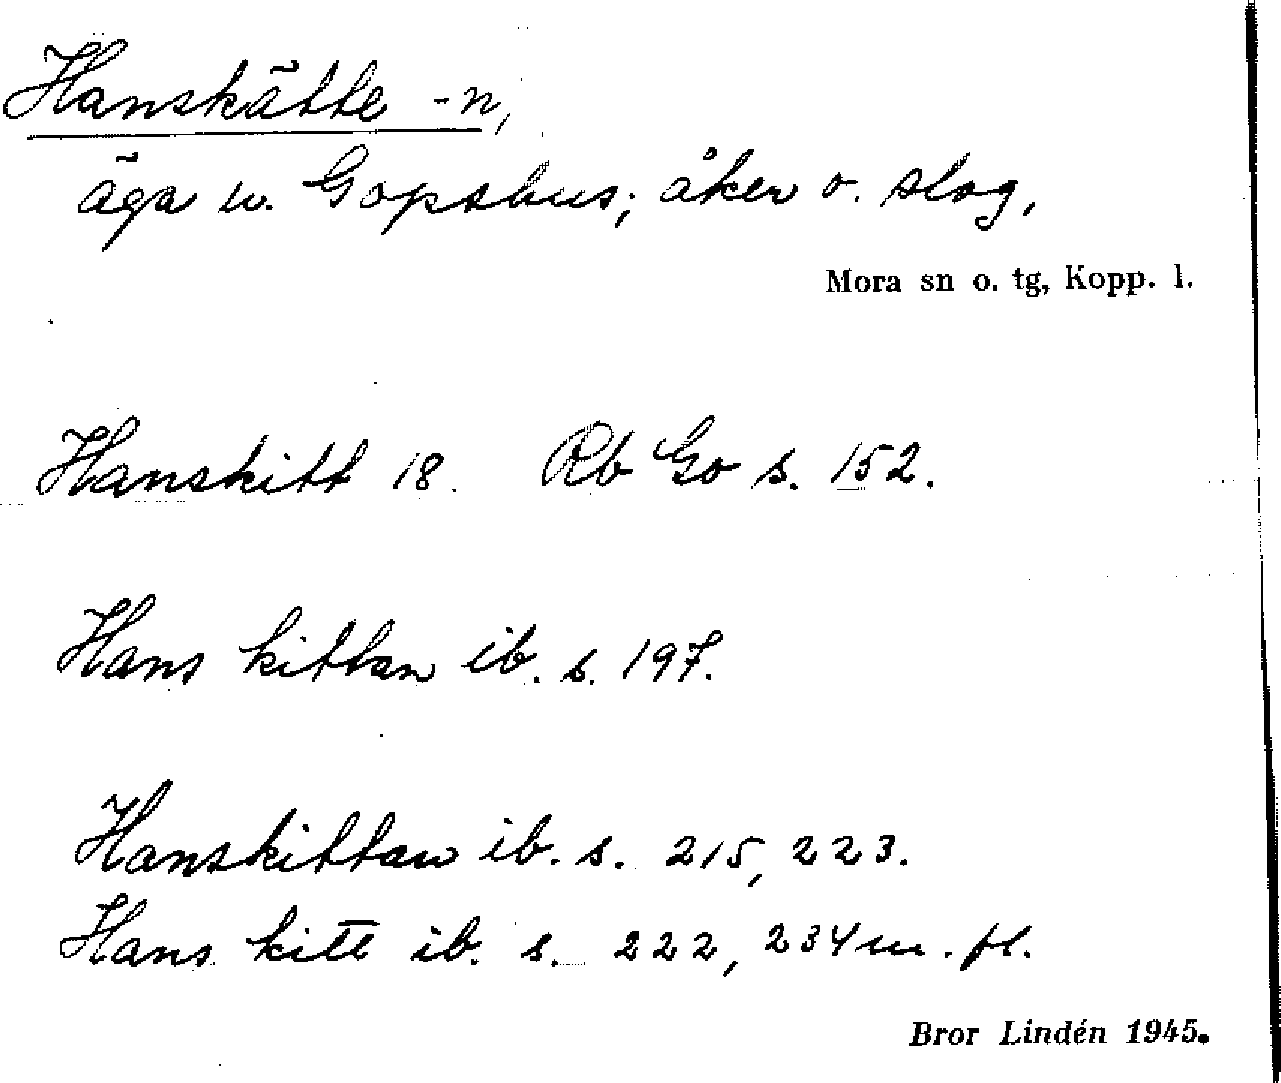 Hanskätte -n,
äga w. Gopshus; åker o. slog,
Mora sn o. tg, Kopp. l.
Hanskitt 18. Rb Go s. 152.
Hans kittan ib. s. 197.
Hanskittan ib. s. 215, 223.
Hans kitt ib. s. 222, 234 m. fl.
Bror Lindén 1945.